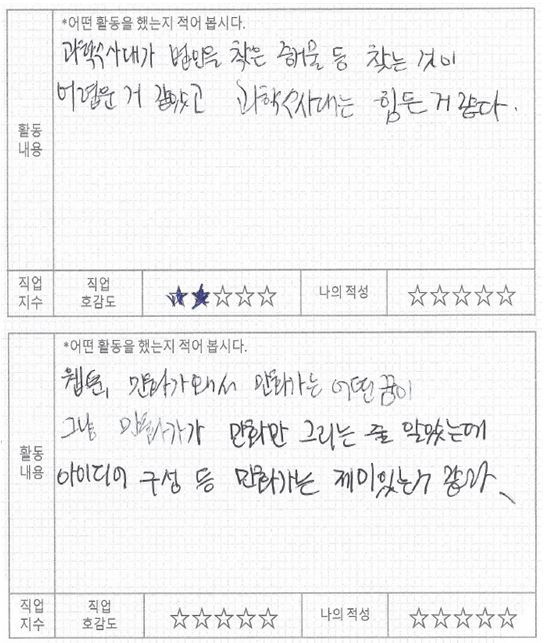 *어떤 활동을 했는지 적어 봅시다.
과학수사대가 범인을 찾은 증거물 등 찾는 것이
어려운 거 같았고 과학수사대는 힘든 거 같다.
활동
내용
직업
지수
직업
호감도
★★☆☆☆
나의 적성
☆☆☆☆☆
*어떤 활동을 했는지 적어 봅시다.
웹툰, 만화가와서 만화가는 어떤 꿈이
그냥 만화가가 만화만 그리는 줄 알았는데
아이디어 구성 등 만화가는 재미있는거 같다
활동
내용
직업
지수
직업
호감도
☆☆☆☆☆
나의 적성
☆☆☆☆☆